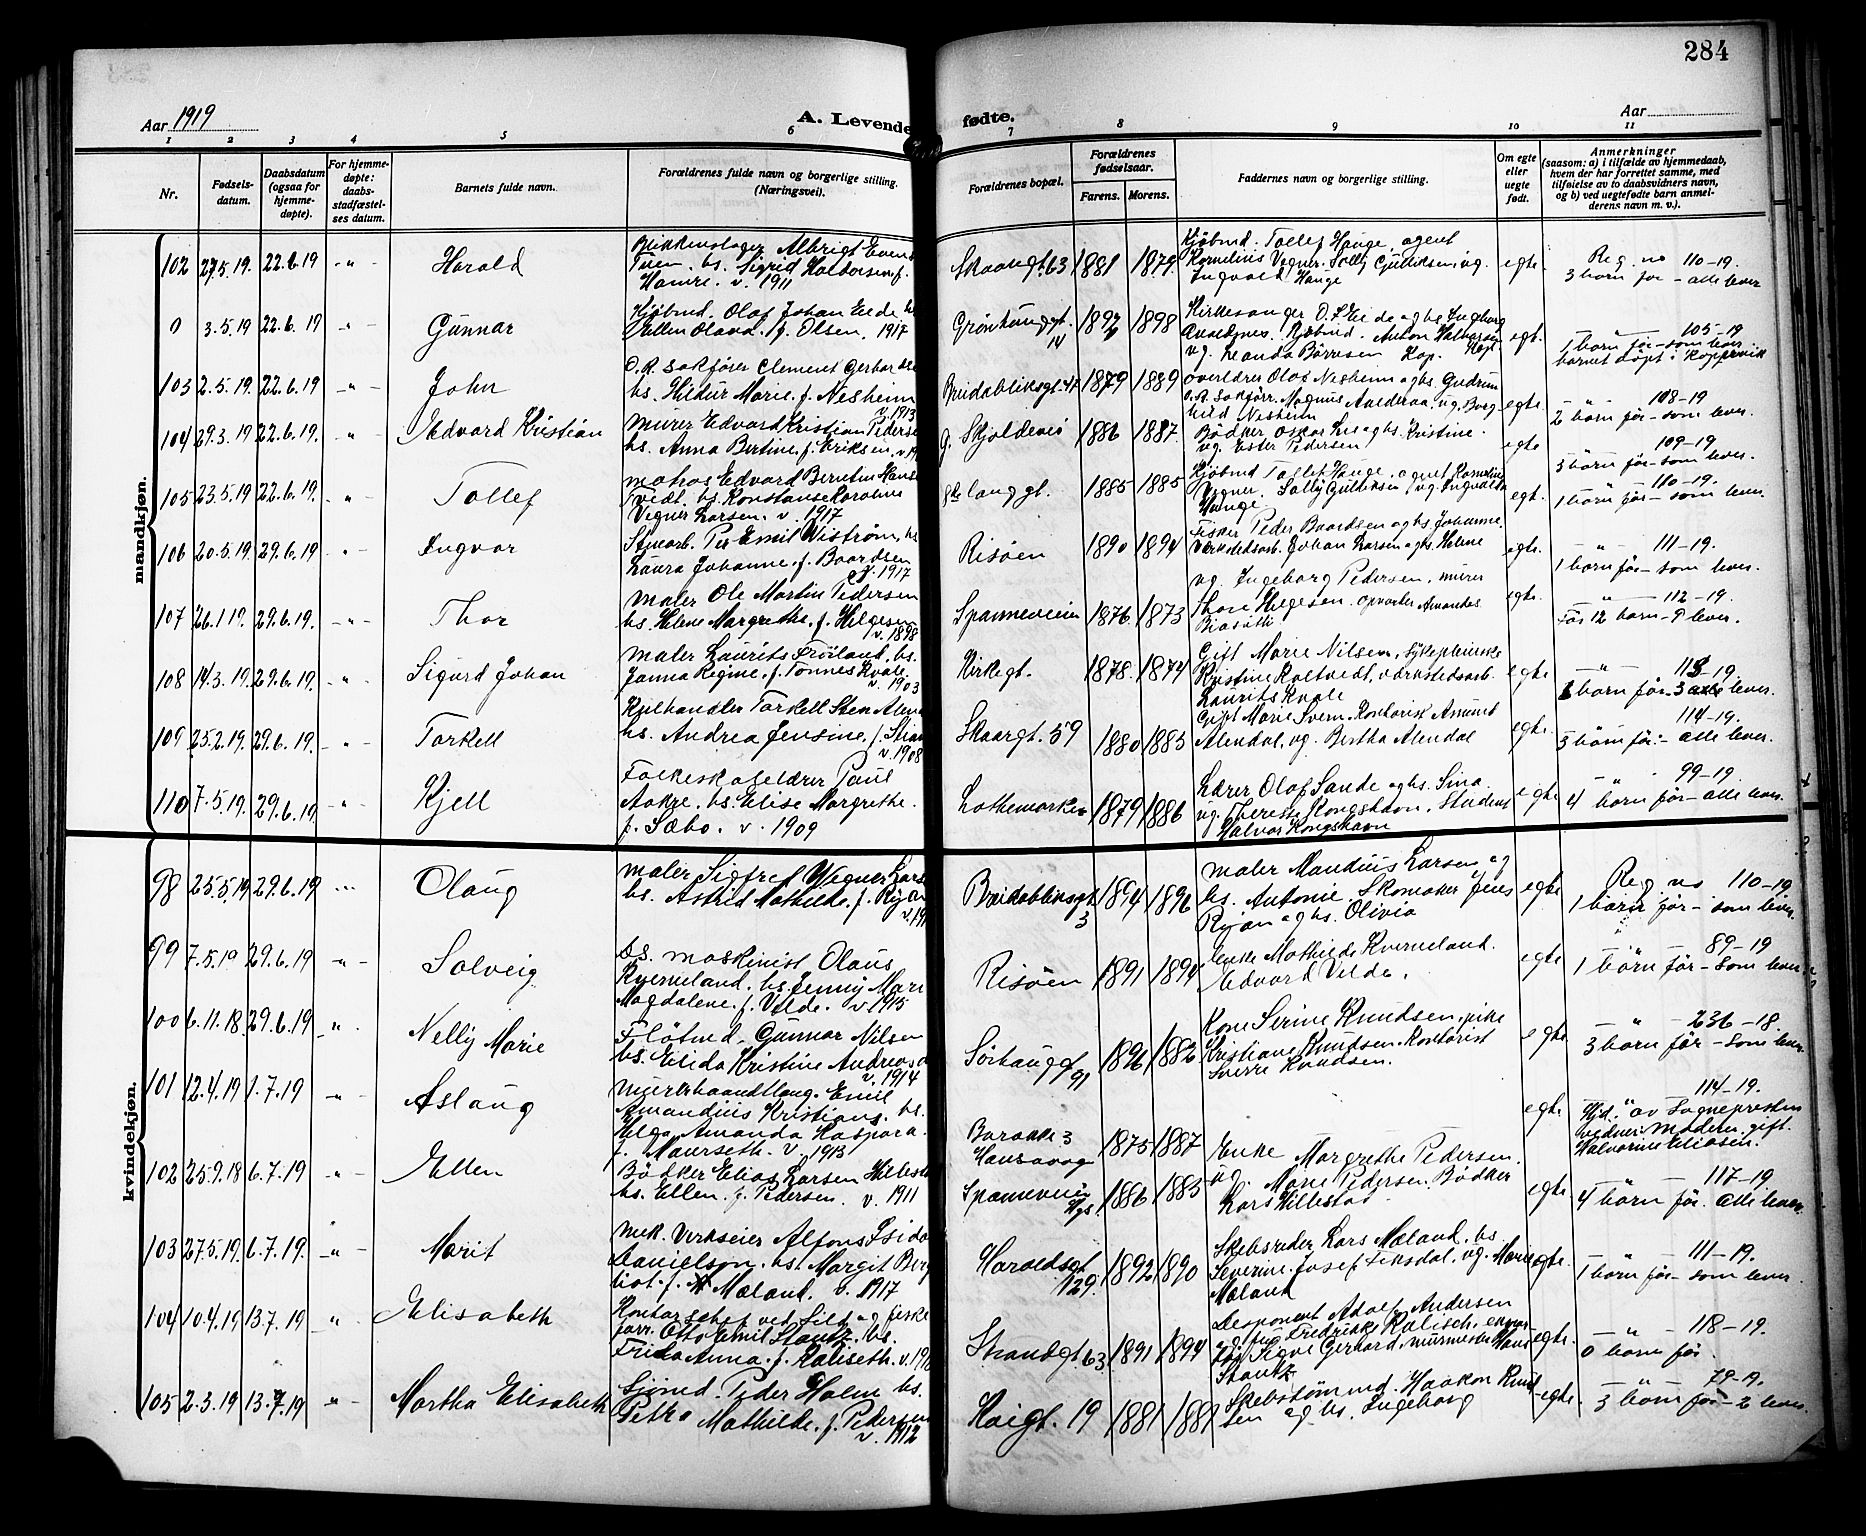 284
Aar 1919
A. Levende fødte.
Aar
1 2 3 4 5 6 7 8 9 10 11
Nr.
Fødsels-
datum.
Daabsdatum
(ogsaa for
hjemme-
døpte).
For hjemme-
døpte:
daabs-
stadfæstel-
ses datum.
Barnets fulde navn.
Forældrenes fulde navn og borgerlige stilling.
(Næringsvei).
Forældrenes bopæl.
Forældrenes
fødselsaar.
Farens. Morens.
Faddernes navn og borgerlige stilling.
Om egte
eller
uegte
født.
Anmerkninger
(saasom: a) i tilfælde av hjemmedaab,
hvem der har forrettet samme, med
tilføielse av to daabsvidners navn,
og b) ved uegtefødte barn anmel-
derens navn m. v.).
mandkjøn.
102 27.5.19. 22.6.19 -"- Harald
Blikkenslager Albrigt Evens
Tuen. hs. Sigrid Haldorsen f.
Hamre. v. 1911
Skaaregt. 63 1881 1879
Kjøbmd. Tollef Hauge, agent
Kornelius Vegner. Solly Gulliksen, ug.
Ingvald Hauge
egte.
Reg. no 110-19.
3 børn før - alle lever
0 3.5.19 22.6.19 -"- Gunnar
Kjøbmd. Olaf Johan Eide hs
Ellen Olava. f. Olsen. 1917
Grønhauggt. 14 1892 1898
Kirkesanger O. S. Eide og hs. Ingeborg
Kjøbmd. Anton Halvorsen
ug. Landa Børresen Kop.
egt.
-"- 105-19
1 børn før - som lever
barnet døpt i Koppervik
103 2.5.19 22.6.19 -"- John
O. R. Sakfører Clement Gerhard
hs. Hildur Marie. f. Nesheim
v. 1913
Breidabliksgt. 47 1879 1889
Overlærer Olaf Nesheim og hs. Gudrun
O. R. Sakførr. Magnus ug. Borg-
hild Nesheim
egte
-"- 108-19
2 børn før - som lever.
104 29.3.19 22.6.19. -"- Edvard Kristian
Murer Edvard Kristian Peders
hs. Anna Bertine. f. Eriksen. v. 19
g. Skjoldevei 1886 1887.
Bødker Oskar og hs. Kristine.
ug. Ester Pedersen
egte
109-19
3 børn før - som lever.
105 23.5.19 22.6.19. -"- Tollef
Matros Edvard Berntin Hans
Tvedt. hs. Konstanse Karoline
Vegner Larsen. v. 1917
langgt. 1885 1885
Kjøbmd Tollef Hauge. agent Kornelius
Vegner. Solly Gulliksen, ug. Ingvald
Hauge
egt.
110-19.
1 børn før - som lever.
106 20.5.19 29.6.19 -"- Ingvar
Per Emil Wistrøm, hs
Laura Johanne. f. Baardsen
v. 1917
Risøen 1890 1894
Fisker Peder Baardsen og hs. Johanne.
Verkstedsarb. Johan Larsen og hs. Helene
egte.
-"- 111-19.
1 børn før - som lever.
107 26.1.19. 29.6.19. -"- Thor
Maler Ole Martin Pedersen
hs. Helene Margrethe. f. Helgesen
v. 1898
Spanneveien 1876. 1873
ug. Ingeborg Pedersen, murer
Thore Helgesen. Opvarter Amandus
egte.
-"- 112-19.
Før 12 børn - 9 lever.
108 14.3.19. 29.6.19. -"- Sigurd Johan
Maler Laurits Frøiland. hs.
Janna Regine. f. Tønnes Kvale
v. 1903
Kirkegt. 1878. 1874
Gift Marie Nilsen, sykepleierske
Kristine Koltvedt, verkstedsarb.
Laurits Kvale
egte
-"- 113-19.
børn før. 3 lever.
109 25.2.19. 29.6.19. -"- Torkell
Kulhandler Torkell Sten Alen
hs. Andrea Jensine. f.
v. 1908
Skaaregt. 59 1880 1883
Gift Marie Svern. Kontorist Amund
Alendal, ug. Bertha Alendal
egte.
114-19.
5 børn før - alle lever.
110 7.5.19. 29.6.19 -"- Kjell
Folkeskolelærer Paul
Aakre. hs. Elise Margrethe.
f. Sæbo. v. 1909
Lothemarken 1879 1886
Lærer Olaf Sande og hs. Sina.
ug. Therese Kongshavn, Student
Halvor Kongshavn
egte
-"- 99-19.
4 børn før - alle lever.
kvindekjøn.
98 25.5.19 29.6.19 Olaug
Maler Sigfred Wegner Lars
hs. Astrid Mathilde. f. Rijan
v. 19
Breidabliksgt 3 1894 1896
Maler Mandius Larsen og
hs. Antonie. Skomaker Jens
Rijan og hs. Olivia
egte
Reg. no 110-19
1 børn før - som lever.
99 7.5.19 29.6.19 -"- Solveig
Ds. maskinist Olaus
Kverneland. hs. Jenny Mari
Magdalene. f. Velde. v 1915
Risøen 1891 1894
Enke Mathilde Kverneland.
Edvard Velde.
egte
-"- 89-19
1 børn før - som lever
100 6.11.18. 29.6.19 " Nelly Marie
Fløtmd. Gunnar Nilsen
hs. Elida Kristine Andreas
v. 1914
Sørhauggt 91 1896 1882
Kone Serine Knudsen, pike
Kristiane Knudsen. Kontorist
Sverre Knudsen.
egte
-"- 236-18.
3 børn før - som lever.
101 12.4.19 1.7.19 -"- Aslaug
Murerhaandtlang. Emil
Amandius Kristians. hs.
Helga Amanda Kaspara.
f. Maurseth. v. 1913
Barakke 3
Hansavaag 1875 1887
egte
114-19.
Hjd. av Sogneprestен
vidner: Moderen, gift.
Halvorine Eliasen.
102 25.9.18 6.7.19 -"- Ellen
Bødker Elias Larsen Hillest
hs. Ellen. f. Pedersen. v. 1911
Spanneveien 1886 1883
Enke Margrethe Pedersen.
ug. Marie Pedersen. Bødker
Lars Hillestad
egte
-"- 117-19.
4 børn før. alle lever.
103 27.5.19. 6.7.19. -"- Marit
Mek. Verkseier Alfons Isido
Danielson. hs. Margit Berg
liot. f. Mæland. v. 1917
Haraldsgt 129. 1892 1890
Skibsreder Lars Mæland. hs.
Severine. Josef Fiksdal, ug. Marie
Mæland
egte.
-"- 111-19.
1 børn før - som lever.
104 10.4.19 13.7.19 -"- Elisabeth
Kontorschef ved Sild og fiske
forr. Otto Emil Stautz. hs.
Frida Anna. f. Kaliseth. v. 19
Strandgt. 63 1891 1894
Disponent Adolf Andersen
og fru Fredrikke Kalisch,
Sigve Gerhard, murmester Hans
Stautz
egte.
-"- 118-19.
0 børn før
105 2.3.19 13.7.19 -"- Martha Elisabeth
Sjømd. Peder Holm hs.
Petra Mathilde. f. Pedersen
v. 1912
Haigt. 19 1881 1889
Skibstømmd. Haakon Knud
sen og hs. Ingeborg
egte.
-"- 79-19.
3 børn før - 2 lever.